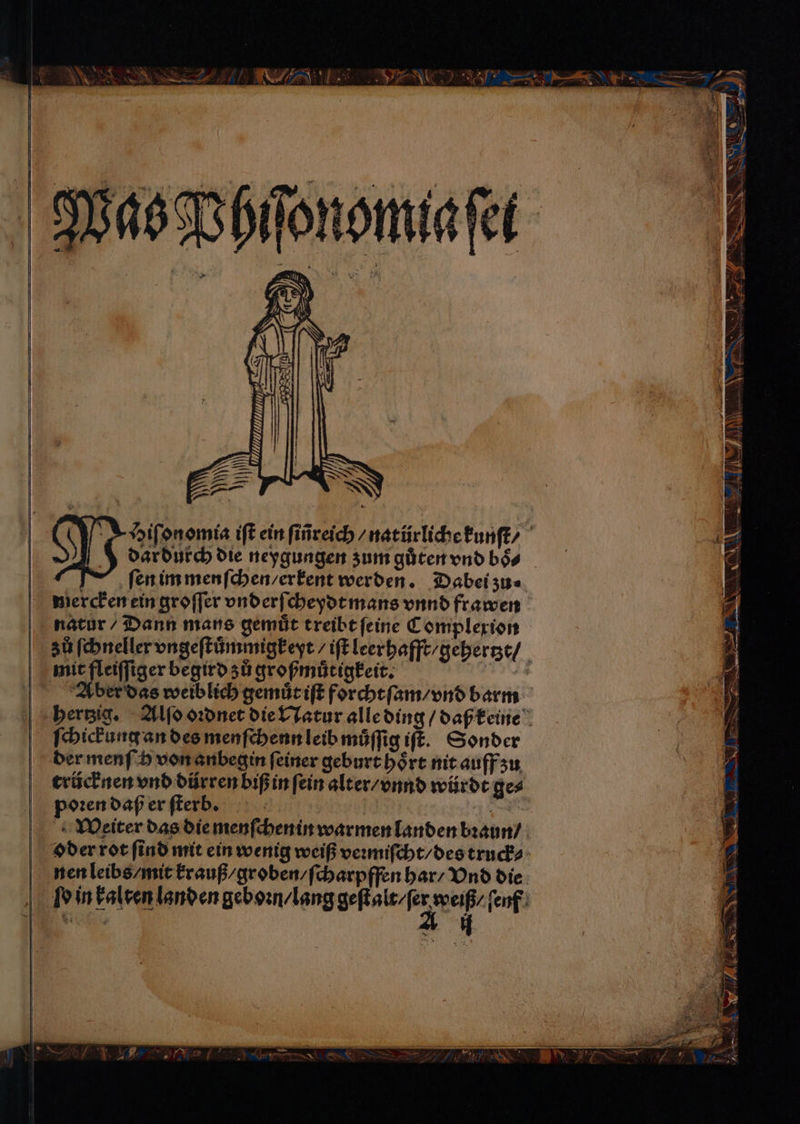 Was Phiſonomia ſei
PHiſonomia iſt ein ſiñreich / natürliche kunſt /
dardurch die neygungen zum gůten vnd boͤ⸗
ſen im menſchen / erkent werden. Dabei zu⸗
mercken ein groſſer vnderſcheydt mans vnnd frawen
natur / Dann mans gemuͤt treibt ſeine Complexion
zů ſchneller vngeſtuͤmmigkeyt / iſt leerhafft / gehertzt /
mit fleiſſiger begird zů großmuͤtigkeit.
Aber das weiblich gemuͤt iſt forchtſam / vnd barm
hertzig. Alſo ordnet die Natur alle ding / daß keine
ſchickung an des menſchenn leib muͤſſig iſt. Sonder
der menſch von anbegin ſeiner geburt hoͤrt nit auff zu
trücknen vnd dürren biß in ſein alter / vnnd würdt ge⸗
poren daß er ſterb.
Weiter das die menſchen in warmen landen braun /
oder rot ſind mit ein wenig weiß vermiſcht / des truck⸗
nen leibs / mit krauß / groben / ſcharpffen har / Vnd die
ſo in kalten landen geborn / lang geſtalt / ſer weiß / ſenf
A ij